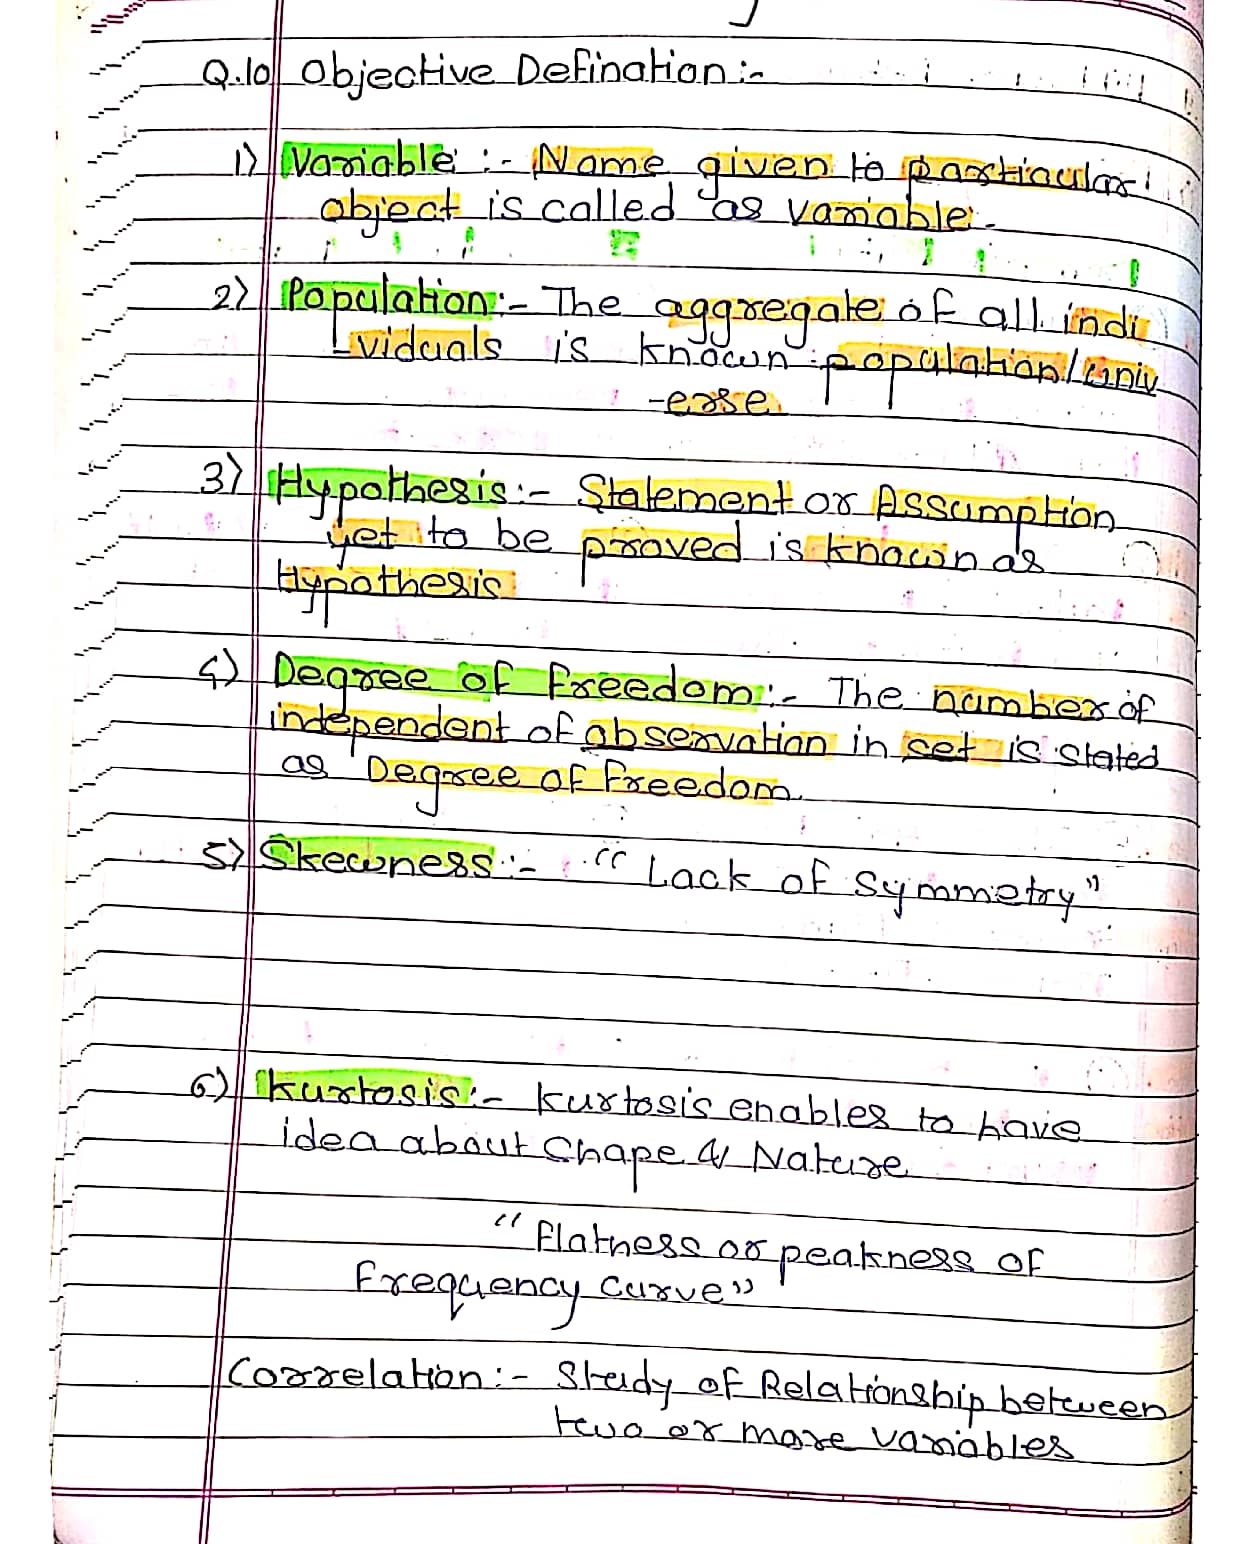 Q.10 Objective Defination :-
1) Variable :- Name given to particular
object is called as variable.
2) Population :- The aggregate of all indi
-viduals is known population/univ
-erse.
3) Hypothesis :- Statement or Assumption
yet to be proved is known as
Hypothesis
4) Degree of Freedom :- The number of
independent of observation in set is stated
as Degree of Freedom.
5) Skewness :- "Lack of Symmetry"
6) Kurtosis :- Kurtosis enables to have
idea about Chape & Nature
"Flatness or peakness of
Frequency Curve"
Correlation :- Study of Relationship between
two or more variables